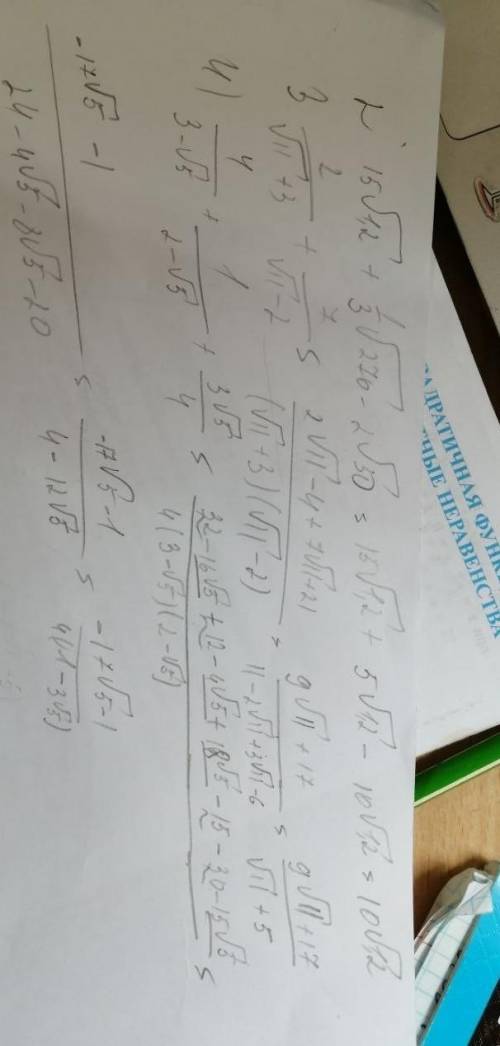 2. 15√12 + 1/3 √226 - 2√50 = 15√12 + 5√12 - 10√12 = 10√12
3 2/(√11+3) + 7/(√11-2) = (2√11-4+7√11+21)/((√11+3)(√11-2)) = (9√11+17)/(11-2√11+3√11-6) = (9√11+17)/(√11+5)
4) 4/(3-√5) + 1/(2-√5) + 3√5/4 = (32-16√5+12-4√5+18√5-15-30-15√5)/(4(3-√5)(2-√5)) =
(-17√5-1)/(24-4√5-8√5-20) = (-17√5-1)/(4-12√5) = (-17√5-1)/(4(1-3√5))
АДРАТИЧНАЯ ФУНК
НЫЕ НЕРАВЕНСТВА